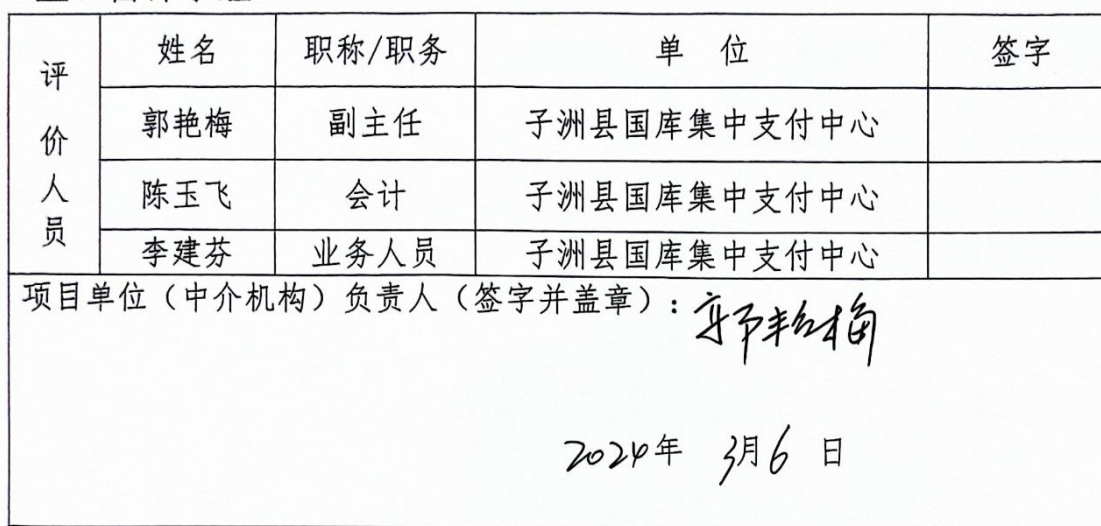 姓名 职称/职务 单 位 签字
评价人员
郭艳梅 副主任 子洲县国库集中支付中心
陈玉飞 会计 子洲县国库集中支付中心
李建芬 业务人员 子洲县国库集中支付中心
项目单位（中介机构）负责人（签字并盖章）：郭艳梅
2024年 3月6 日